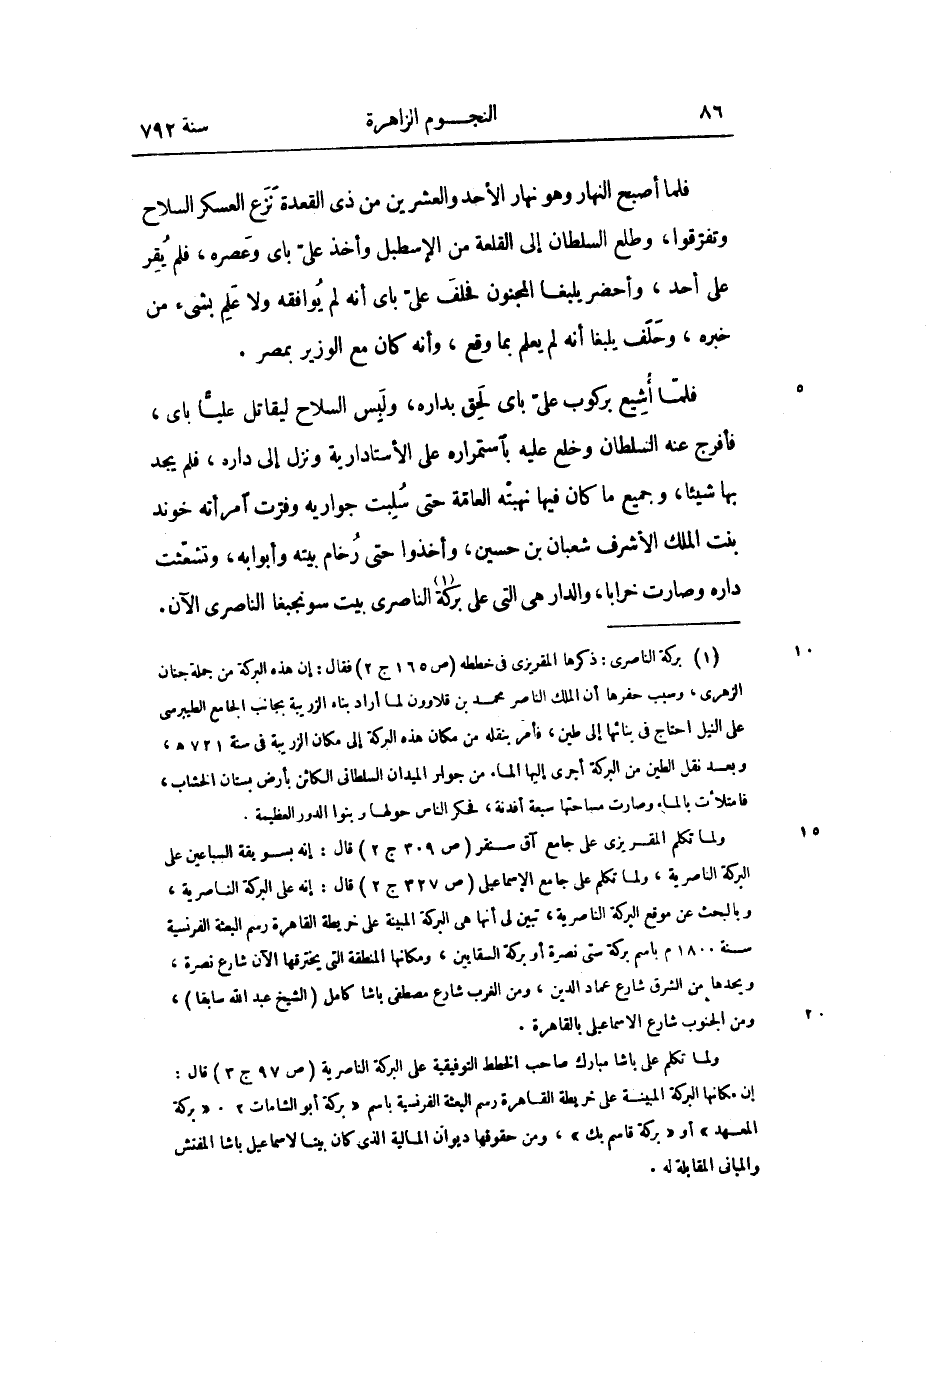 ٨٦ النجوم الزاهرة سنة ٧٩٢
فلما أصبح النهار وهو نهار الأحد والعشرين من ذى القعدة نَزَع العسكر السلاح
وتفرّقوا، وطلع السلطان إلى القلعة من الإسطبل وأخذ علىّ باى وعَصره، فلم يُقِر
على أحد، وأحضر يلبغا المجنون فحلفَ علىّ باى أنه لم يُوافقه ولا عَلِم بشىء من
خبره، وحَلَف يلبغا أنه لم يعلم بما وقع، وأنه كان مع الوزير بمصر.
٥ فلمّا أُشِيع بركوب علىّ باى لَحِق بداره، ولَبِس السلاح ليقاتل عليًّا باى،
فأفرج عنه السلطان وخلع عليه بآستمراره على الأستادارية ونزل إلى داره، فلم يجد
بها شيئا، وجميع ما كان فيها نهبتْه العامّة حتى سُلِبت جواريه وفرّت آمرأته خوند
بنت الملك الأشرف شعبان بن حسين، وأخذوا حتى رُخام بيته وأبوابه، وتشعّثت
داره وصارت خرابا، والدار هى التى على بركة(١) الناصرى بيت سونجبغا الناصرى الآن.
١٠ (١) بركة الناصرى: ذكرها المقريزى فى خططه (ص ١٦٥ ج ٢) فقال: إن هذه البركة من جملة جنان
الزهرى، وسبب حفرها أن الملك الناصر محمد بن قلاوون لما أراد بناء الزريبة بجانب الجامع الطيبرسى
على النيل احتاج فى بنائها إلى طين، فأمر بنقله من مكان هذه البركة إلى مكان الزريبة فى سنة ٧٢١ ه،
وبعد نقل الطين من البركة أجرى إليها الماء من جوار الميدان السلطانى الكائن بأرض بستان الخشاب،
فامتلأت بالماء وصارت مساحتها سبعة أفدنة، فحكر الناس حولها وبنوا الدور العظيمة.
١٥ ولما تكلم المقريزى على جامع آق سنقر (ص ٣٠٩ ج ٢) قال: إنه بسويقة السباعين على
البركة الناصرية، ولما تكلم على جامع الإسماعيلى (ص ٣٢٧ ج ٢) قال: إنه على البركة الناصرية،
وبالبحث عن موقع البركة الناصرية، تبين لى أنها هى البركة المبينة على خريطة القاهرة رسم البعثة الفرنسية
سنة ١٨٠٠ م باسم بركة ستى نصرة أو بركة السقايين، ومكانها المنطقة التى يخترقها الآن شارع نصرة،
ويحدها من الشرق شارع عماد الدين، ومن الغرب شارع مصطفى باشا كامل (الشيخ عبد الله سابقا)،
٢٠ ومن الجنوب شارع الاسماعيلى بالقاهرة.
ولما تكلم على باشا مبارك صاحب الخطط التوفيقية على البركة الناصرية (ص ٩٧ ج ٣) قال:
إن مكانها البركة المبينة على خريطة القاهرة رسم البعثة الفرنسية باسم «بركة أبو الشامات ٢. «بركة
المعهد» أو «بركة قاسم بك»، ومن حقوقها ديوان المالية الذى كان بيتا لاسماعيل باشا المفتش
والمبانى المقابلة له.